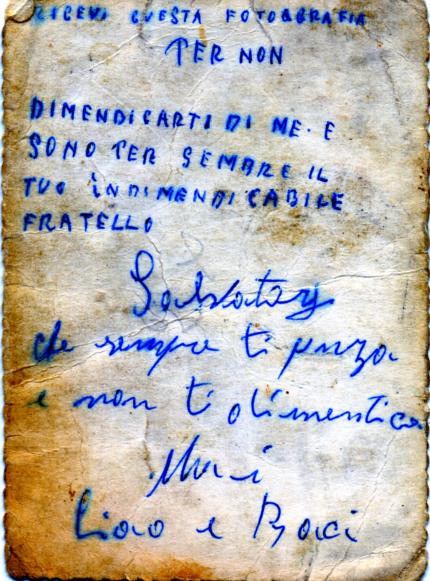 RICEVI QUESTA FOTOGGRAFIA
PER NON
DIMENDICARTI DI ME. E
SONO PER SEMBRE IL
TUO INDIMENDICABILE
FRATELLO
che sempre ti penza
e non ti dimentica
Mai
Ciao e Baci